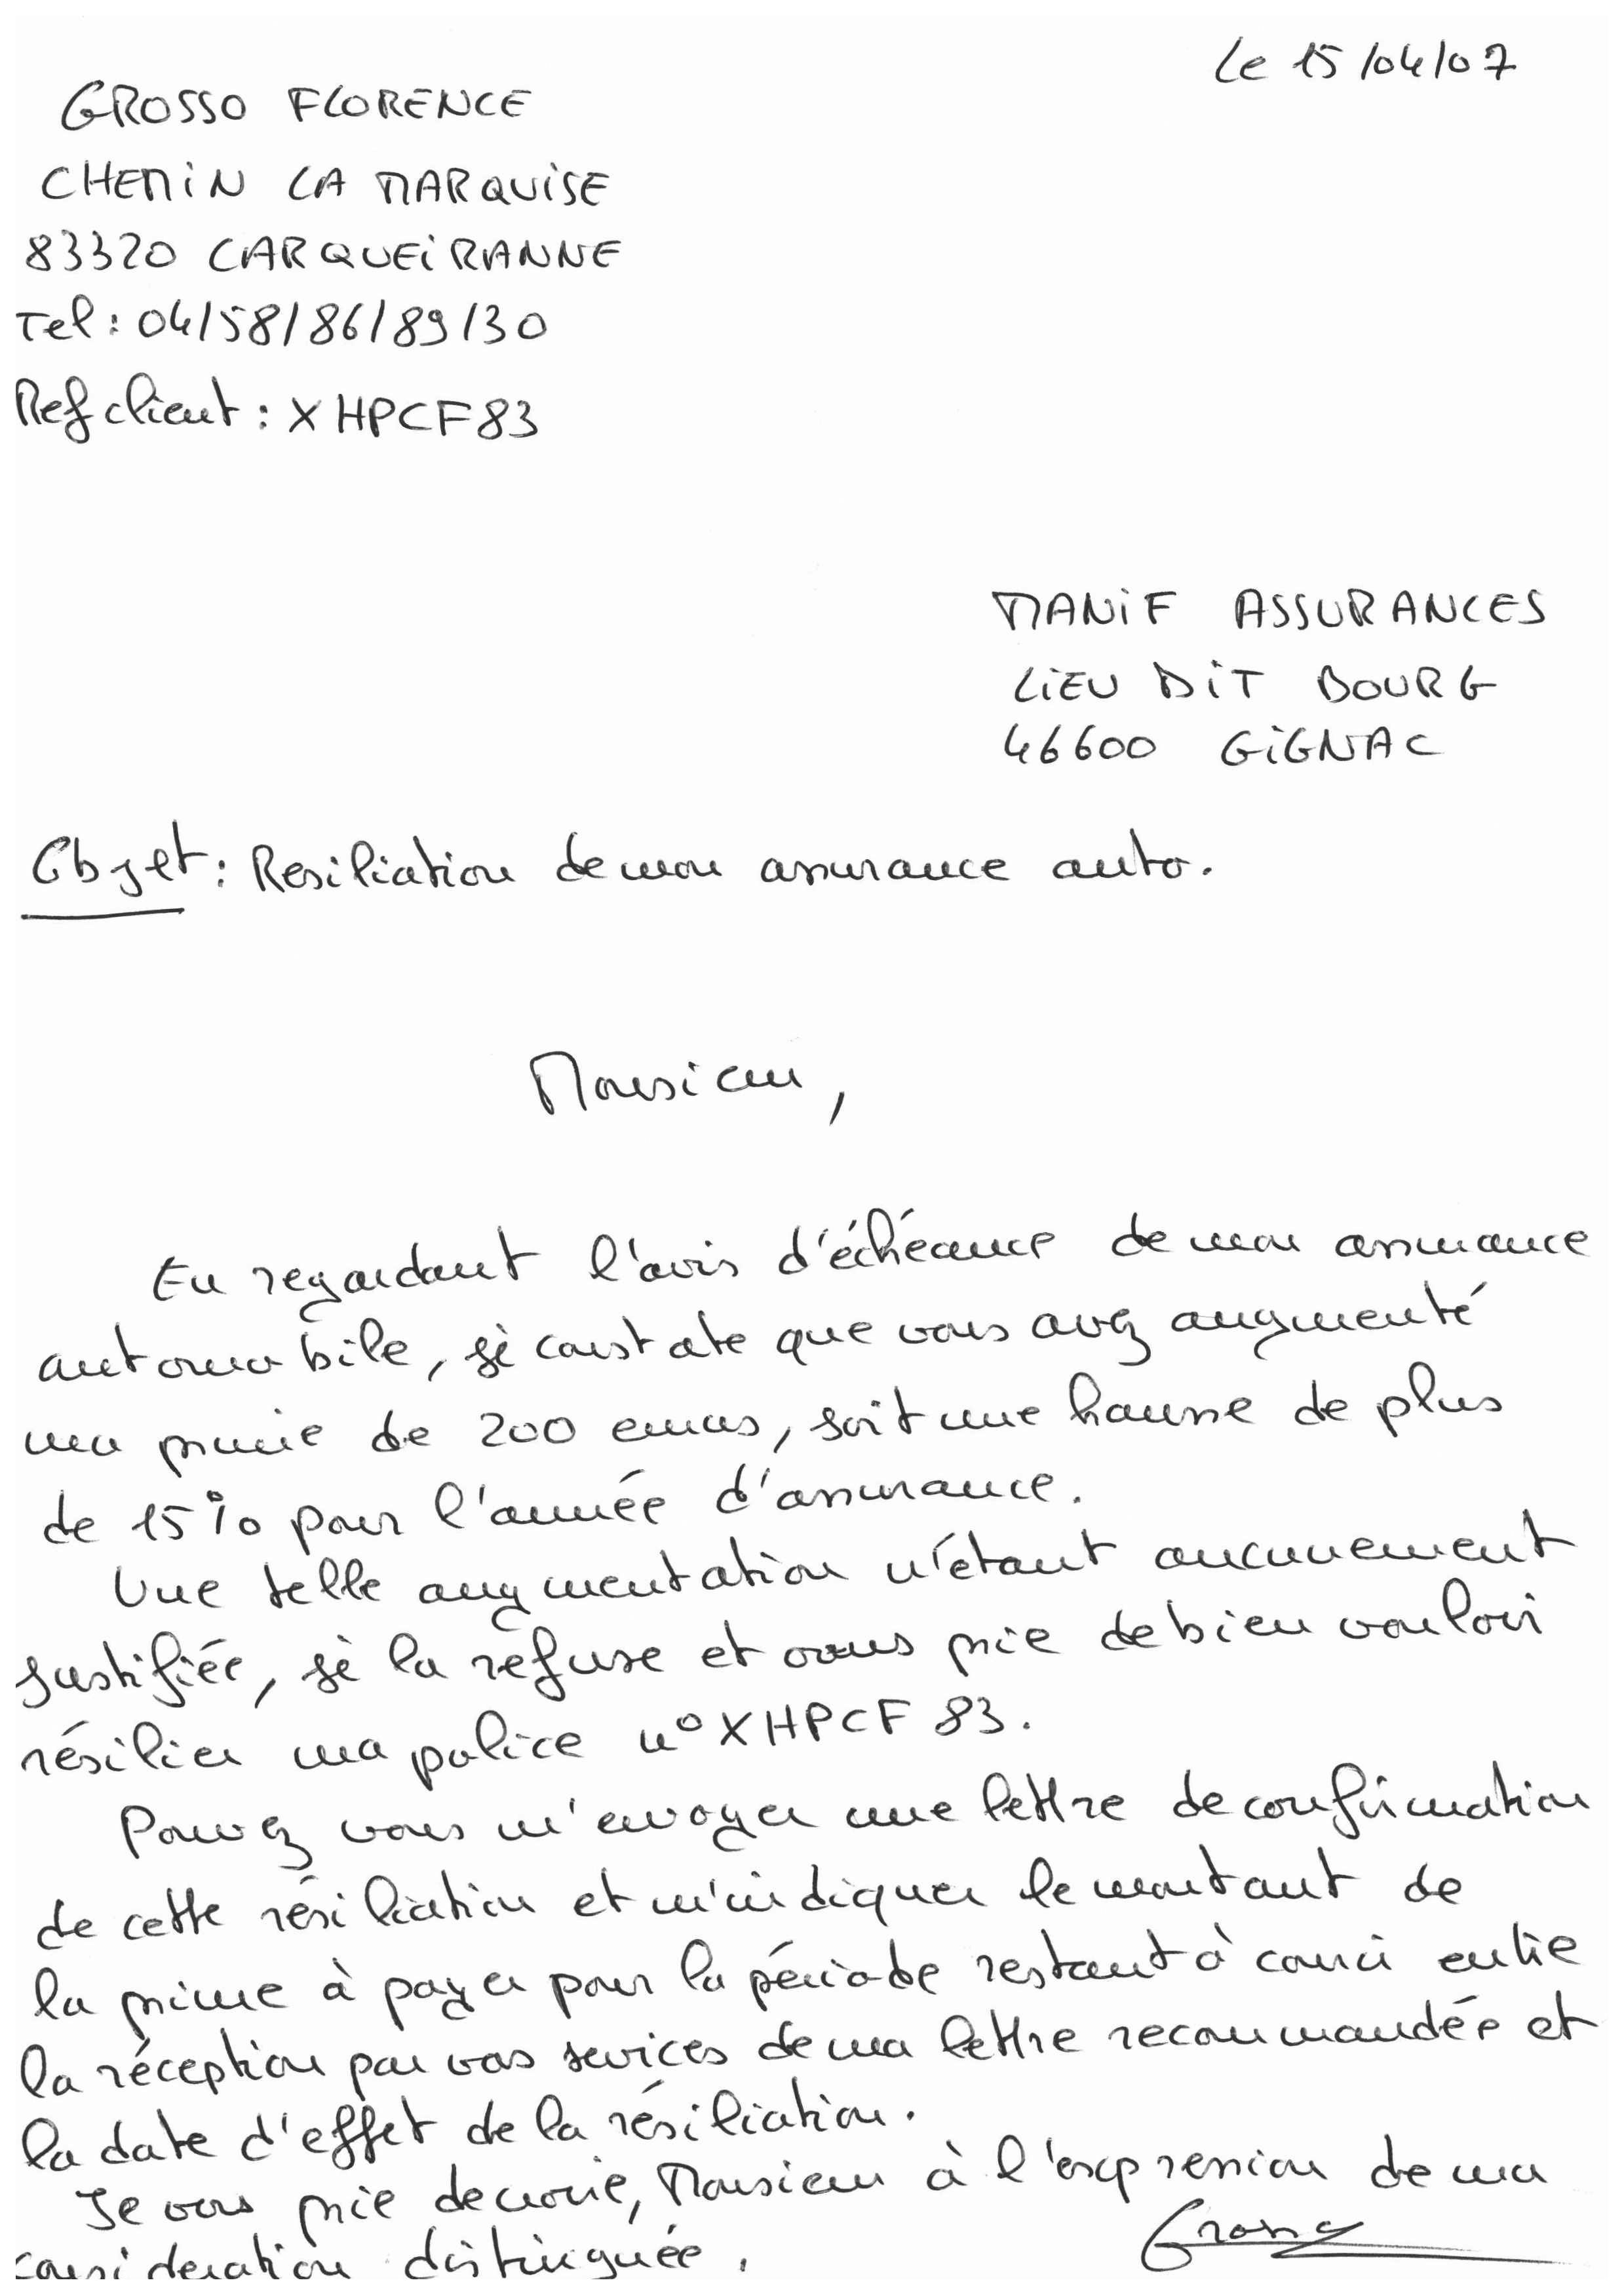 Le 15/04/07
GROSSO FLORENCE
CHEMIN LA MARQUISE
83320 CARQUEIRANNE
Tel : 04/58/86/89/30
Ref client : XHPCF83
MANIF ASSURANCES
LIEU DIT BOURG
46600 GIGNAC
Objet : Resiliation de mon assurance auto.
Monsieur,
En regardant l'avis d'échéance de mon assurance
automobile, je constate que vous avez augmenté
ma prime de 200 euros, soit une hausse de plus
de 15% pour l'année d'assurance.
Une telle augmentation n'étant aucunement
justifiée, je la refuse et vous prie de bien vouloir
résilier ma police n° XHPCF 83.
Pouvez vous m'envoyer une lettre de confirmation
de cette résiliation et m'indiquer le montant de
la prime à payer pour la période restant à courir entre
la réception par vos services de ma lettre recommandée et
la date d'effet de la résiliation.
Je vous prie de croire, Monsieur à l'expression de ma
consideration distinguée.
Grosso